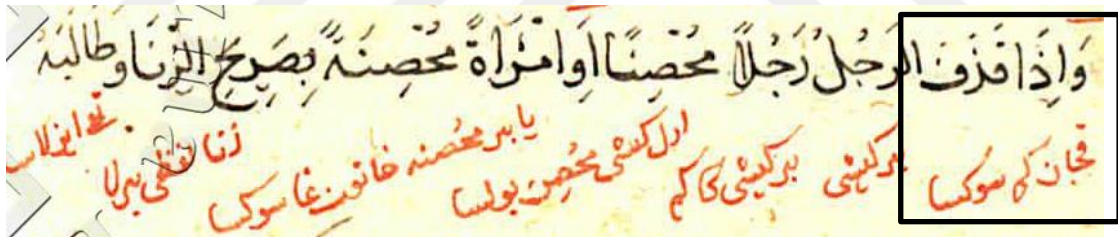 وَاِذَا قَذَفَ الرَجُلُ رَجُلاً مُحْصِنًا اَوِ امْرَاَةً مُحْصِنَةً بِصَرِيحِ الزِّنَا وَطَالَبَهُ
قچان كه سوكسا بر كيشى بر كيشى كا كم اول كيشى محصن بولسا يا بر محصنه خاتون غا سوكسا زنا لفظى برلا